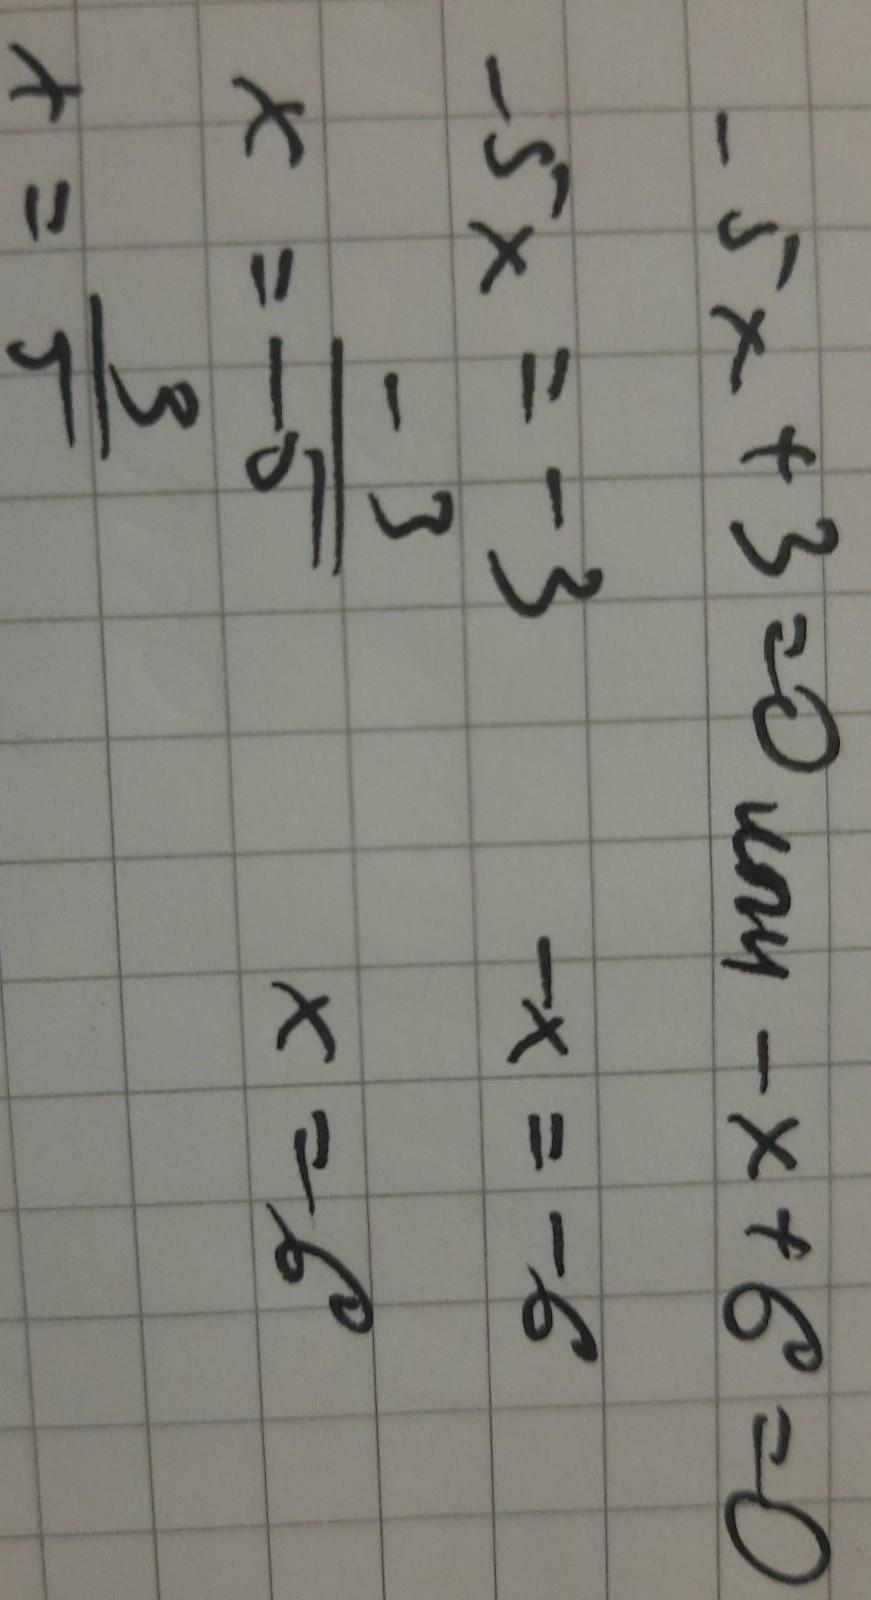 -5x + 3 = 0 или -x + 6 = 0
-5x = -3 -x = -6
x = \frac{-3}{-5} x = 6
x = \frac{3}{5}